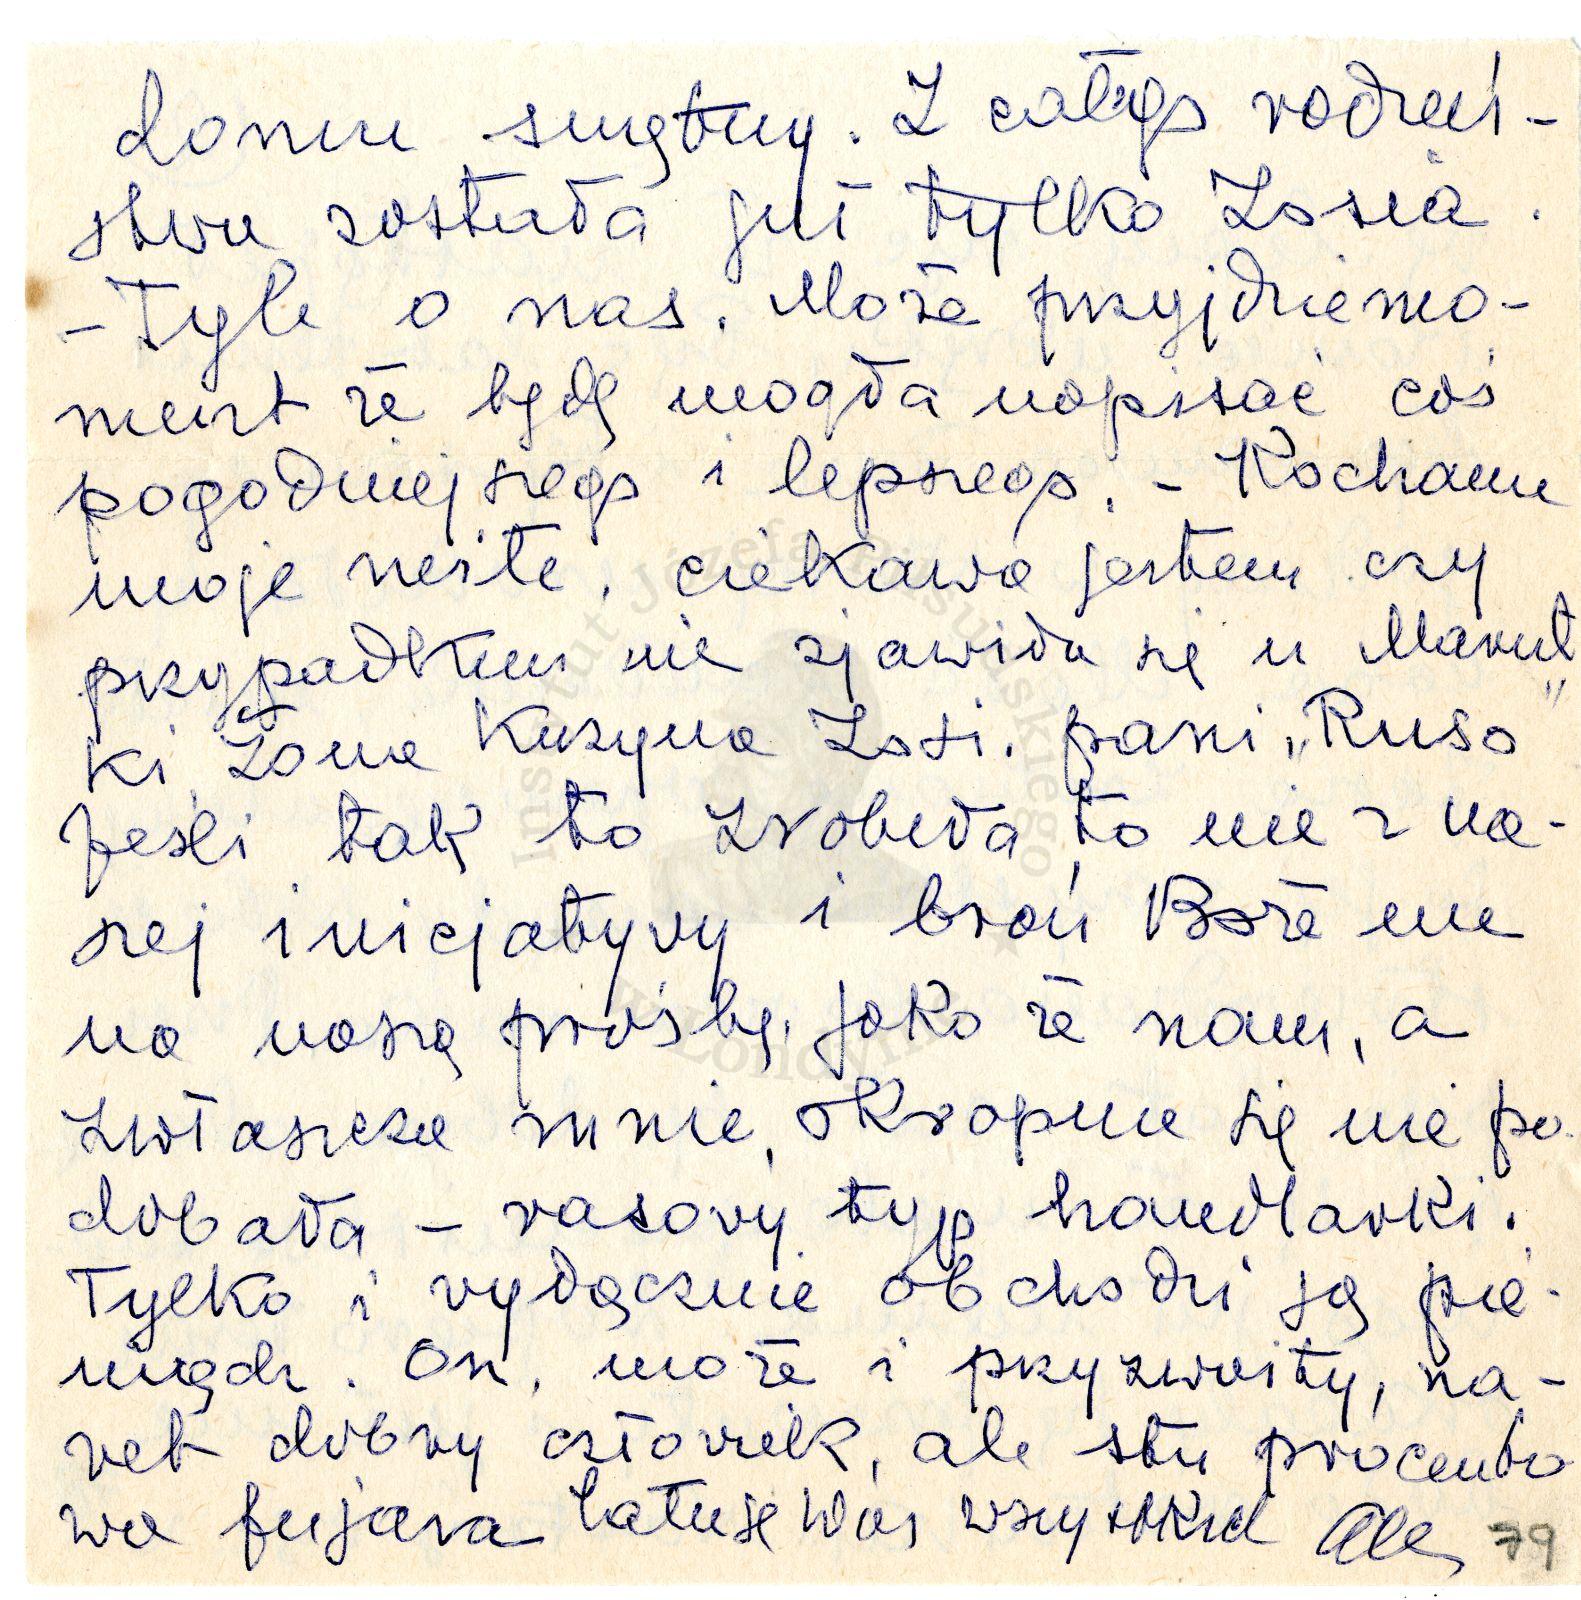 domu smętny. Z całego rodzeń-
stwa została już tylko Zosia.
- Tyle o nas. Może przyjdzie mo-
ment że będę mogła napisać coś
pogodniejszego i lepszego. - Kochane
moje, ciekawa jestem czy
przypadkiem nie zjawiła się u Marut
ki żona kuzyna Zosi. pani „Ruso"
Jeśli tak to zrobiła to nie z na-
szej inicjatywy i broń Boże nie
na naszą prośbę, jako że nam, a
zwłaszcza mnie, okropnie się nie po-
dobała - rasowy typ handlarki.
Tylko i wyłącznie obchodzi ją pie-
niądz. On, może i przyzwoity, na-
wet dobry człowiek, ale stu procento
wa fujara Całuję Was wszystkich Ala
79
Instytut Józefa Piłsudskiego
w Londynie